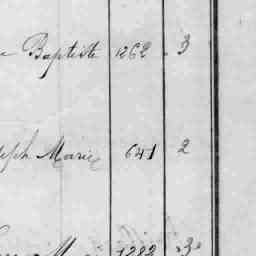 Baptiste 1262 3
seph Marie 641 2
1282 3